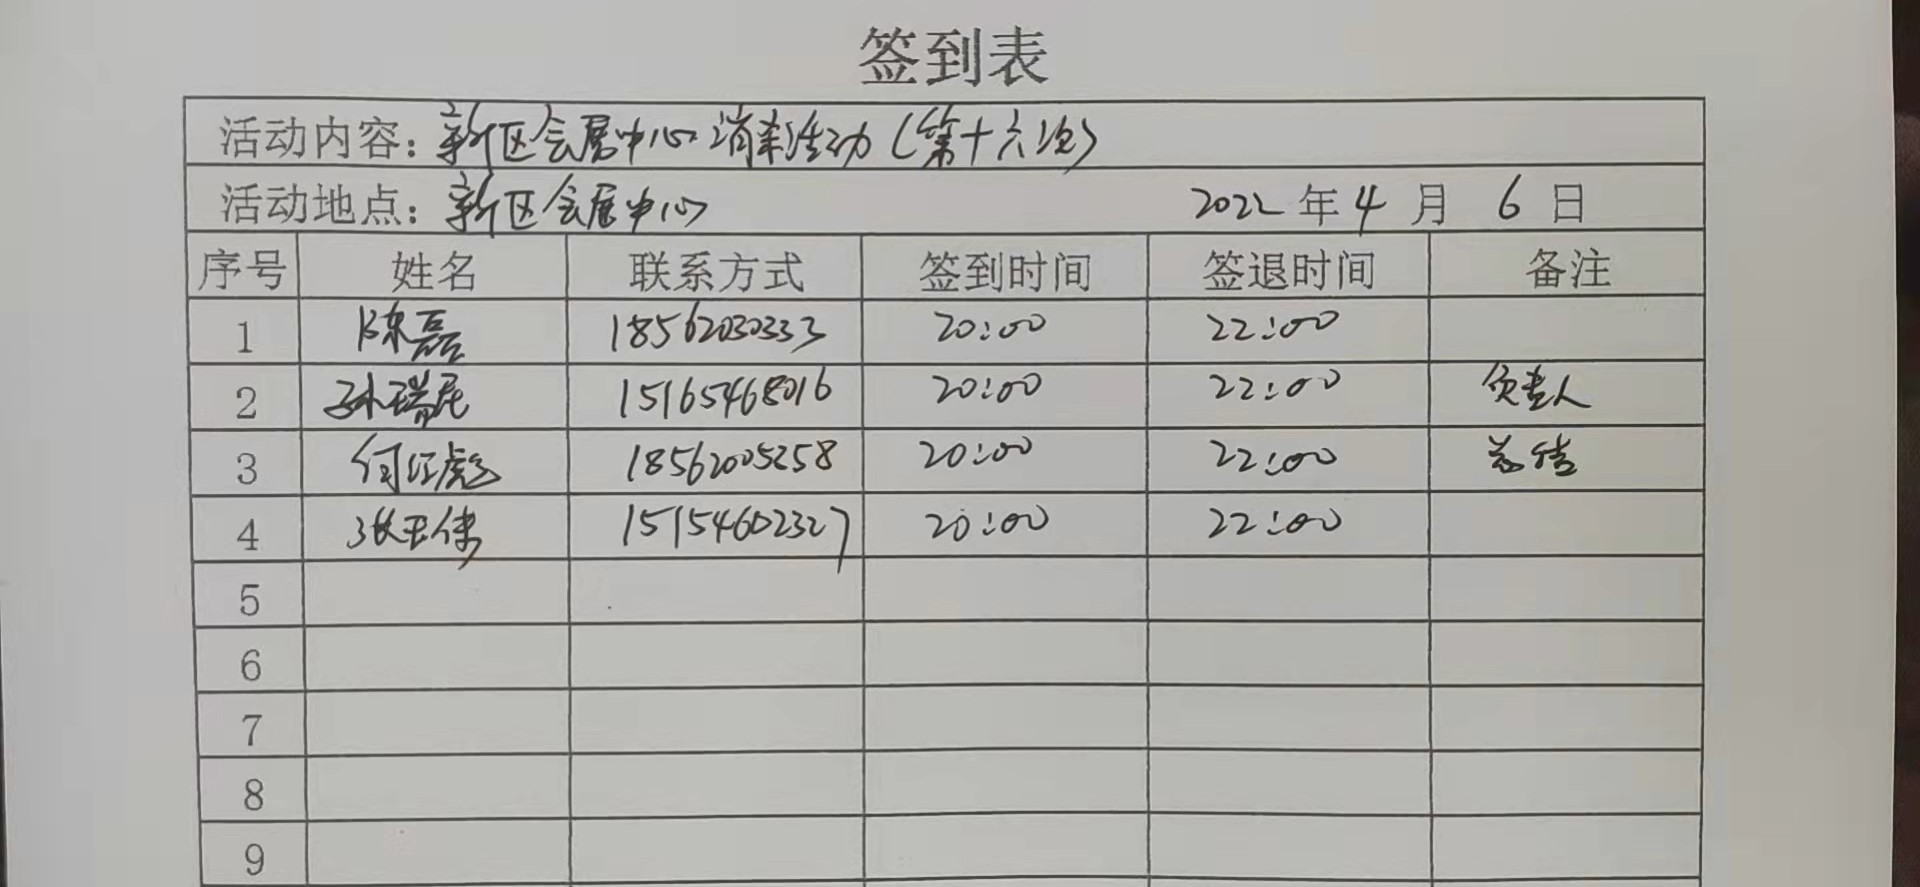 签到表
活动内容：新区会展中心消杀活动（第十六次）
活动地点：新区会展中心 2022年4月6日
序号 姓名 联系方式 签到时间 签退时间 备注
1 陈磊 18562030333 20:00 22:00
2 孙瑞 15165468016 20:00 22:00 负责人
3 何 彪 18562005258 20:00 22:00 总结
4 张玉伟 15154602327 20:00 22:00
5
6
7
8
9